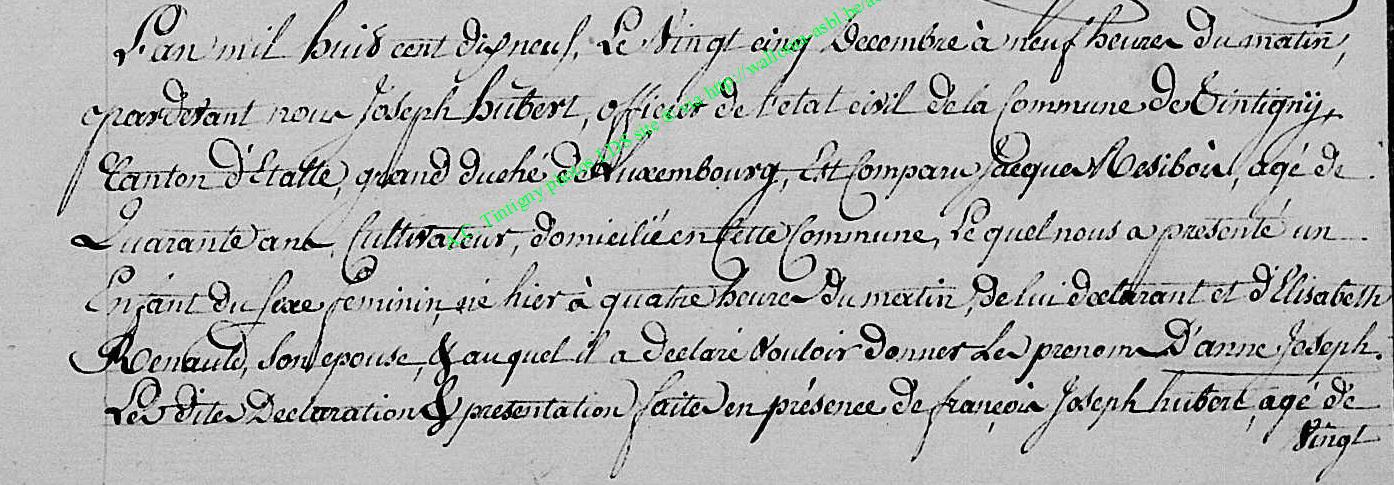 L'an mil huit cent dix neuf, Le Vingt cinq Decembre à neuf heures du matin,
pardevant nous Joseph hubert, officier de l'etat civil de la Commune de Tintigny,
Canton d'Etalle, grand duché de Luxembourg, Est Comparu Jacques Resibois, agé de
Quarante ans, Cultivateur, domicilié en Cette Commune, Le quel nous a presenté un
Enfant du sexe feminin, né hier à quatre heures du matin, de lui declarant et d'Elisabeth
Renauld, son epouse, & auquel il a declaré Vouloir donner Les prenoms D'anne Joseph.
Les dites Declaration & presentation faites en présence de françois Joseph hubert, agé de
Vingt
KF: Tintigny photos LDS site & via http://wallonia-asbl.be/as